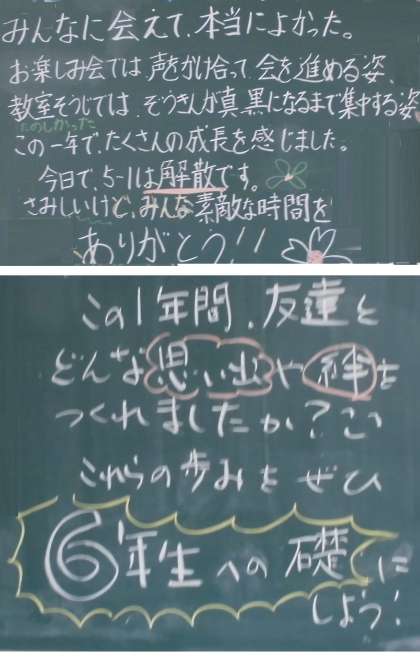 みんなに会えて、本当によかった。
お楽しみ会では、声をかけ合って、会を進める姿、
教室そうじでは、ぞうきんが真黒になるまで集中する姿
たのしかった
この一年で、たくさんの成長を感じました。
今日で、5-1は解散です。
さみしいけど、みんな素敵な時間を
ありがとう!!
この1年間、友達と
どんな思い出や絆を
つくれましたか?
これからの歩みをぜひ
6年生への礎に
しよう!